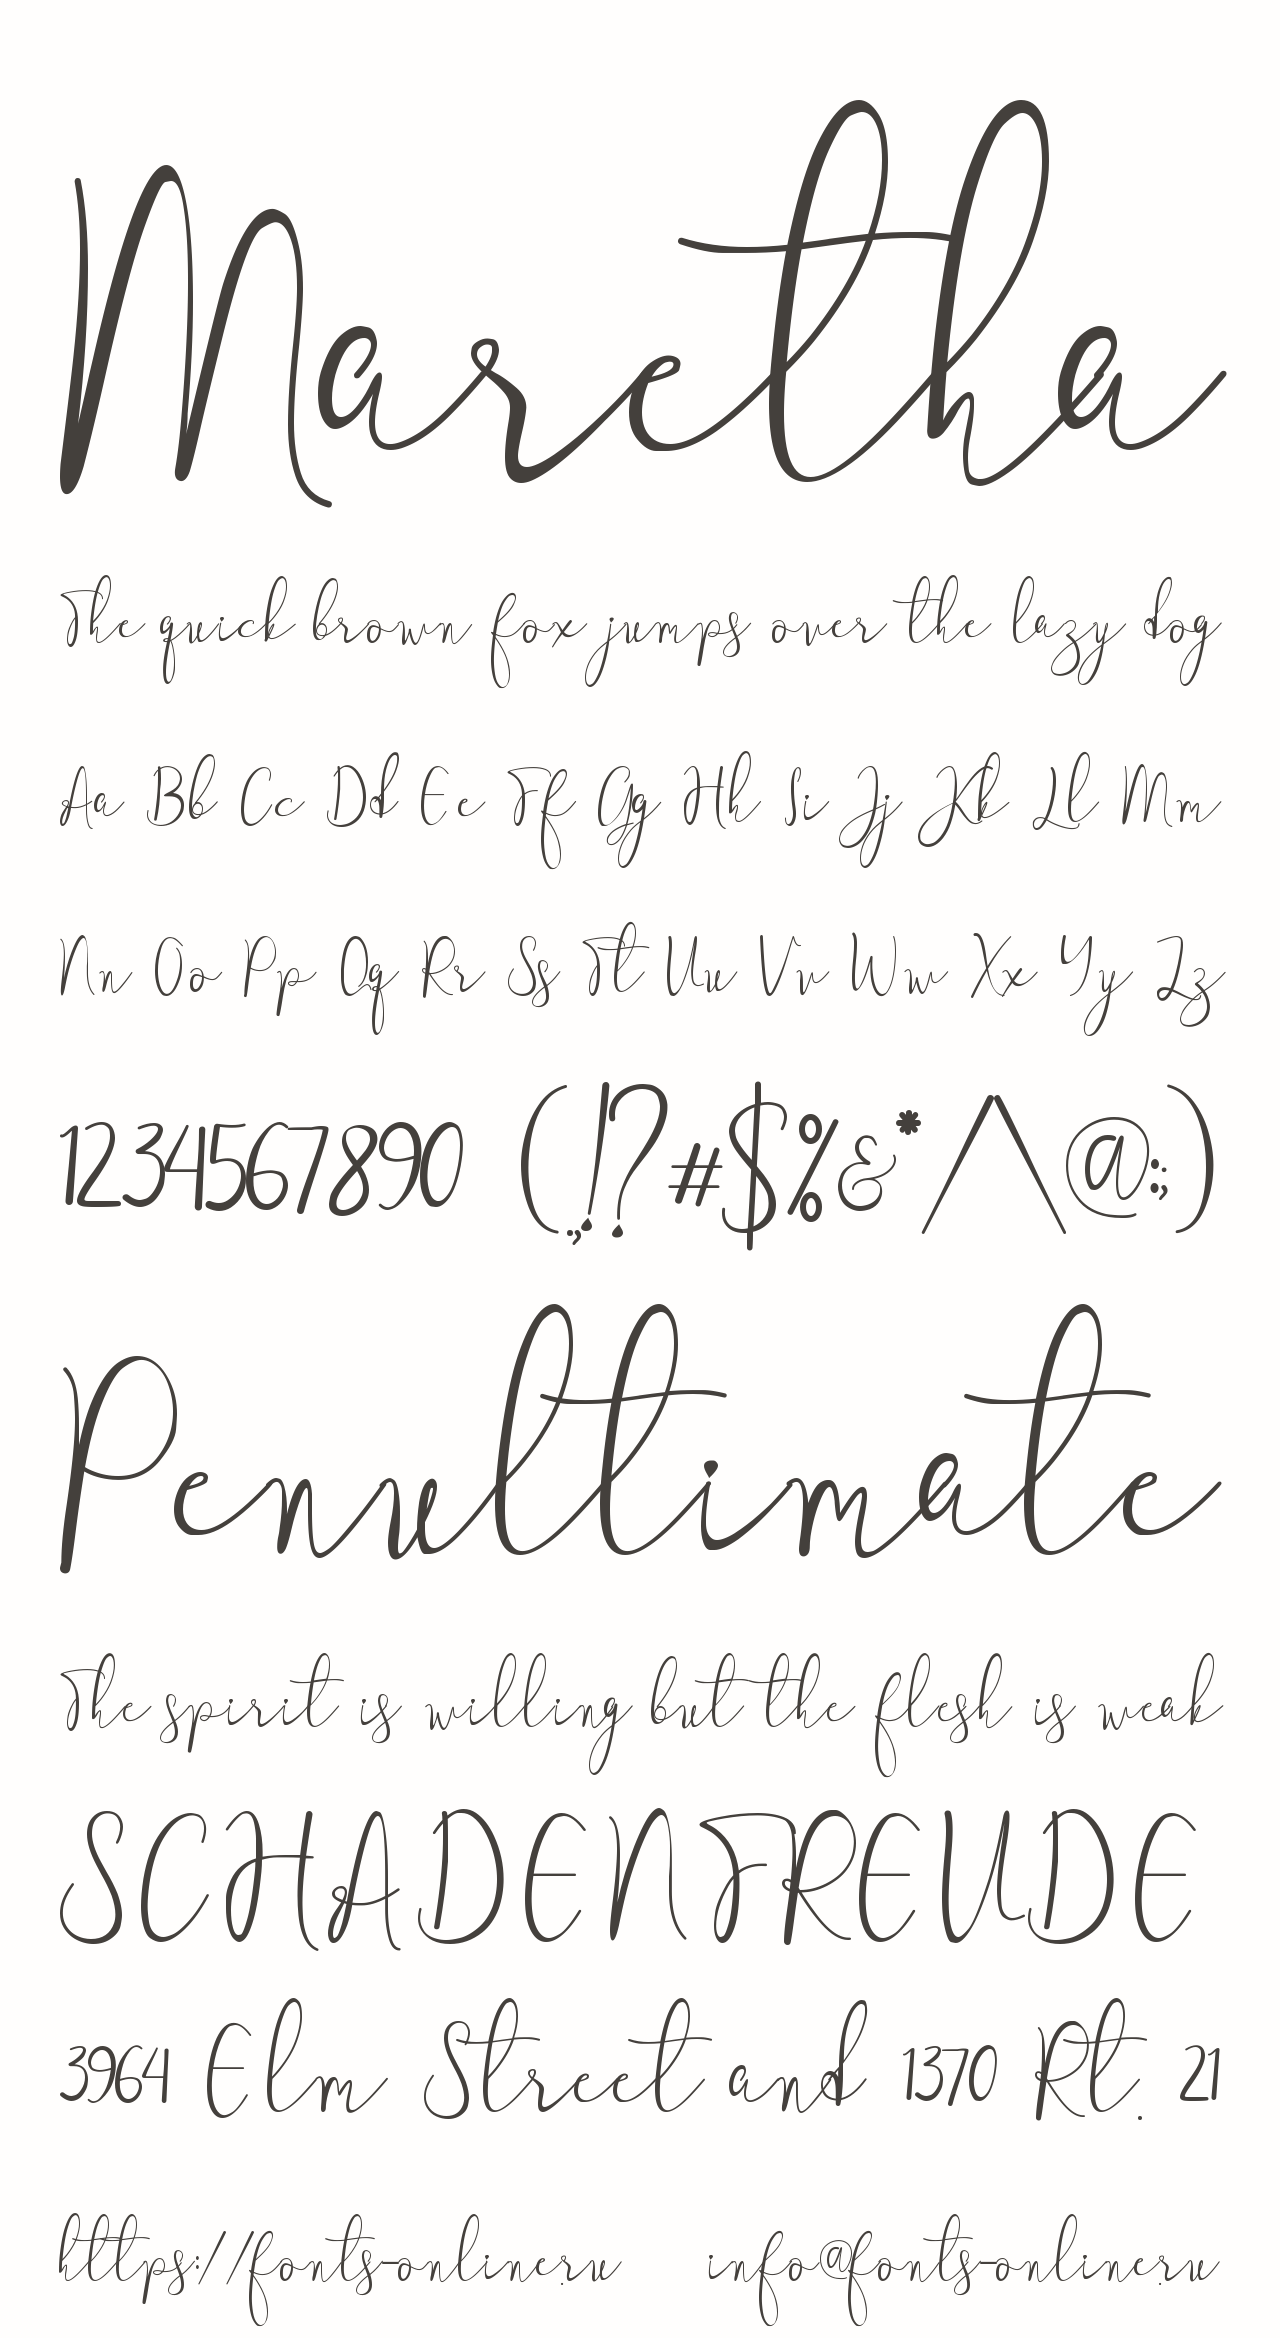 Maretha
The quick brown fox jumps over the lazy dog
Aa Bb Cc Dd Ee Ff Gg Hh Ii Jj Kk Ll Mm
Nn Oo Pp Qq Rr Ss Tt Uu Vv Ww Xx Yy Zz
1234567890 (.,!?#$%&*^@:;)
Penultimate
The spirit is willing but the flesh is weak
SCHADENFREUDE
3964 Elm Street and 1370 Rt. 21
https://fonts-online.ru info@fonts-online.ru